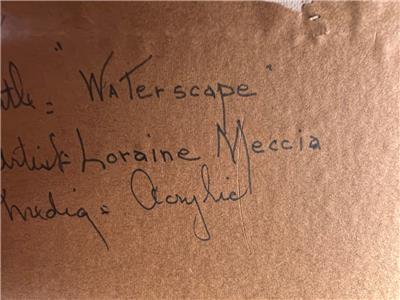 tle: "WaTerscape"
artist: Loraine Meccia
media: Acrylic